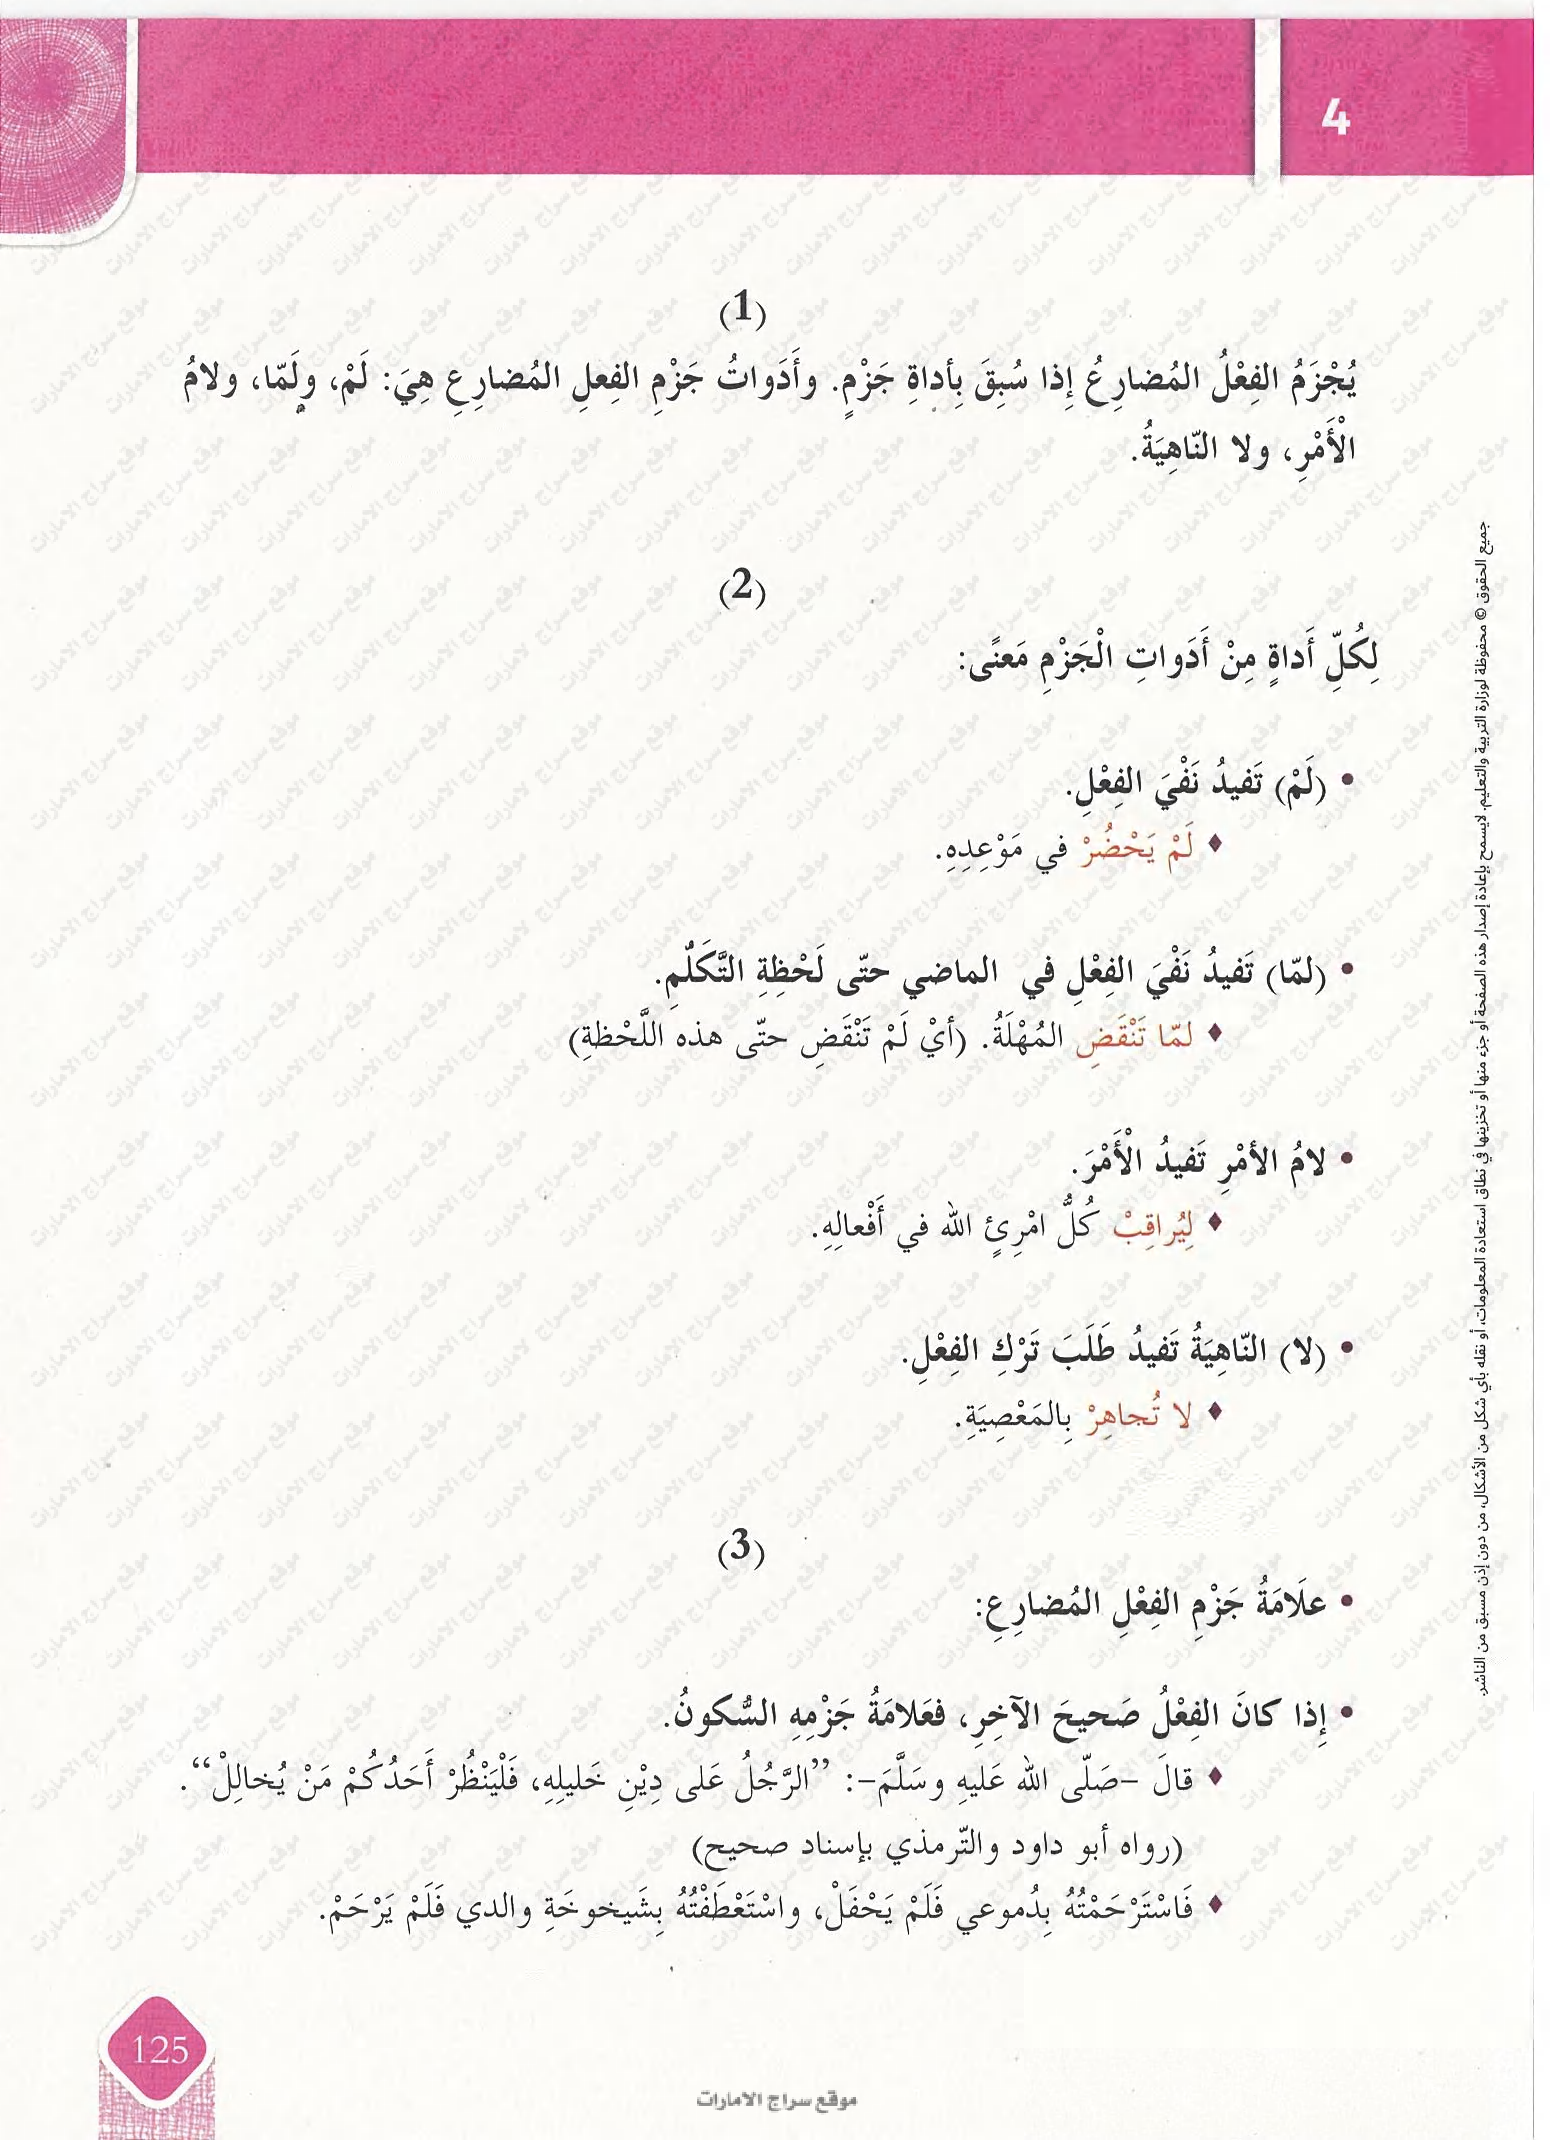 4
(1)
يُجْزَمُ الفِعْلُ المُضارِعُ إِذا سُبِقَ بِأداةِ جَزْمٍ. وأَدَواتُ جَزْمِ الفِعلِ المُضارِعِ هِيَ: لَمْ، ولَمّا، ولامُ
الْأَمْرِ، ولا النّاهِيَةُ.
(2)
لِكُلِّ أَداةٍ مِنْ أَدَواتِ الْجَزْمِ مَعنًى:
• (لَمْ) تَفيدُ نَفْيَ الفِعْلِ.
♦ لَمْ يَحْضُرْ في مَوْعِدِهِ.
• (لمّا) تَفيدُ نَفْيَ الفِعْلِ في الماضي حتّى لَحْظِةِ التَّكَلُّمِ.
♦ لمّا تَنْقَضِ المُهْلَةُ. (أيْ لَمْ تَنْقَضِ حتّى هذه اللَّحْظةِ)
• لامُ الأمْرِ تَفيدُ الْأَمْرَ.
♦ لِيُراقِبْ كُلُّ امْرِئٍ الله في أَفْعالِهِ.
• (لا) النّاهِيَةُ تَفيدُ طَلَبَ تَرْكِ الفِعْلِ.
♦ لا تُجاهِرْ بِالمَعْصِيَةِ.
(3)
• علَامَةُ جَزْمِ الفِعْلِ المُضارِعِ:
• إِذا كانَ الفِعْلُ صَحيحَ الآخِرِ، فعَلامَةُ جَزْمِهِ السُّكونُ.
♦ قالَ -صَلّى الله عَليهِ وسَلَّمَ-: ”الرَّجُلُ عَلى دِيْنِ خَليلِهِ، فَلْيَنْظُرْ أَحَدُكُمْ مَنْ يُخالِلْ“.
(رواه أبو داود والتّرمذي بإسناد صحيح)
♦ فَاسْتَرْحَمْتُهُ بِدُموعي فَلَمْ يَحْفَلْ، واسْتَعْطَفْتُهُ بِشَيخوخَةِ والدي فَلَمْ يَرْحَمْ.
جميع الحقوق © محفوظة لوزارة التربية والتعليم. لايسمح بإعادة إصدار هذه الصفحة أو جزء منها أو تخزينها في نطاق استعادة المعلومات، أو نقله بأي شكل من الأشكال، من دون إذن مسبق من الناشر.
125
موقع سراج الامارات